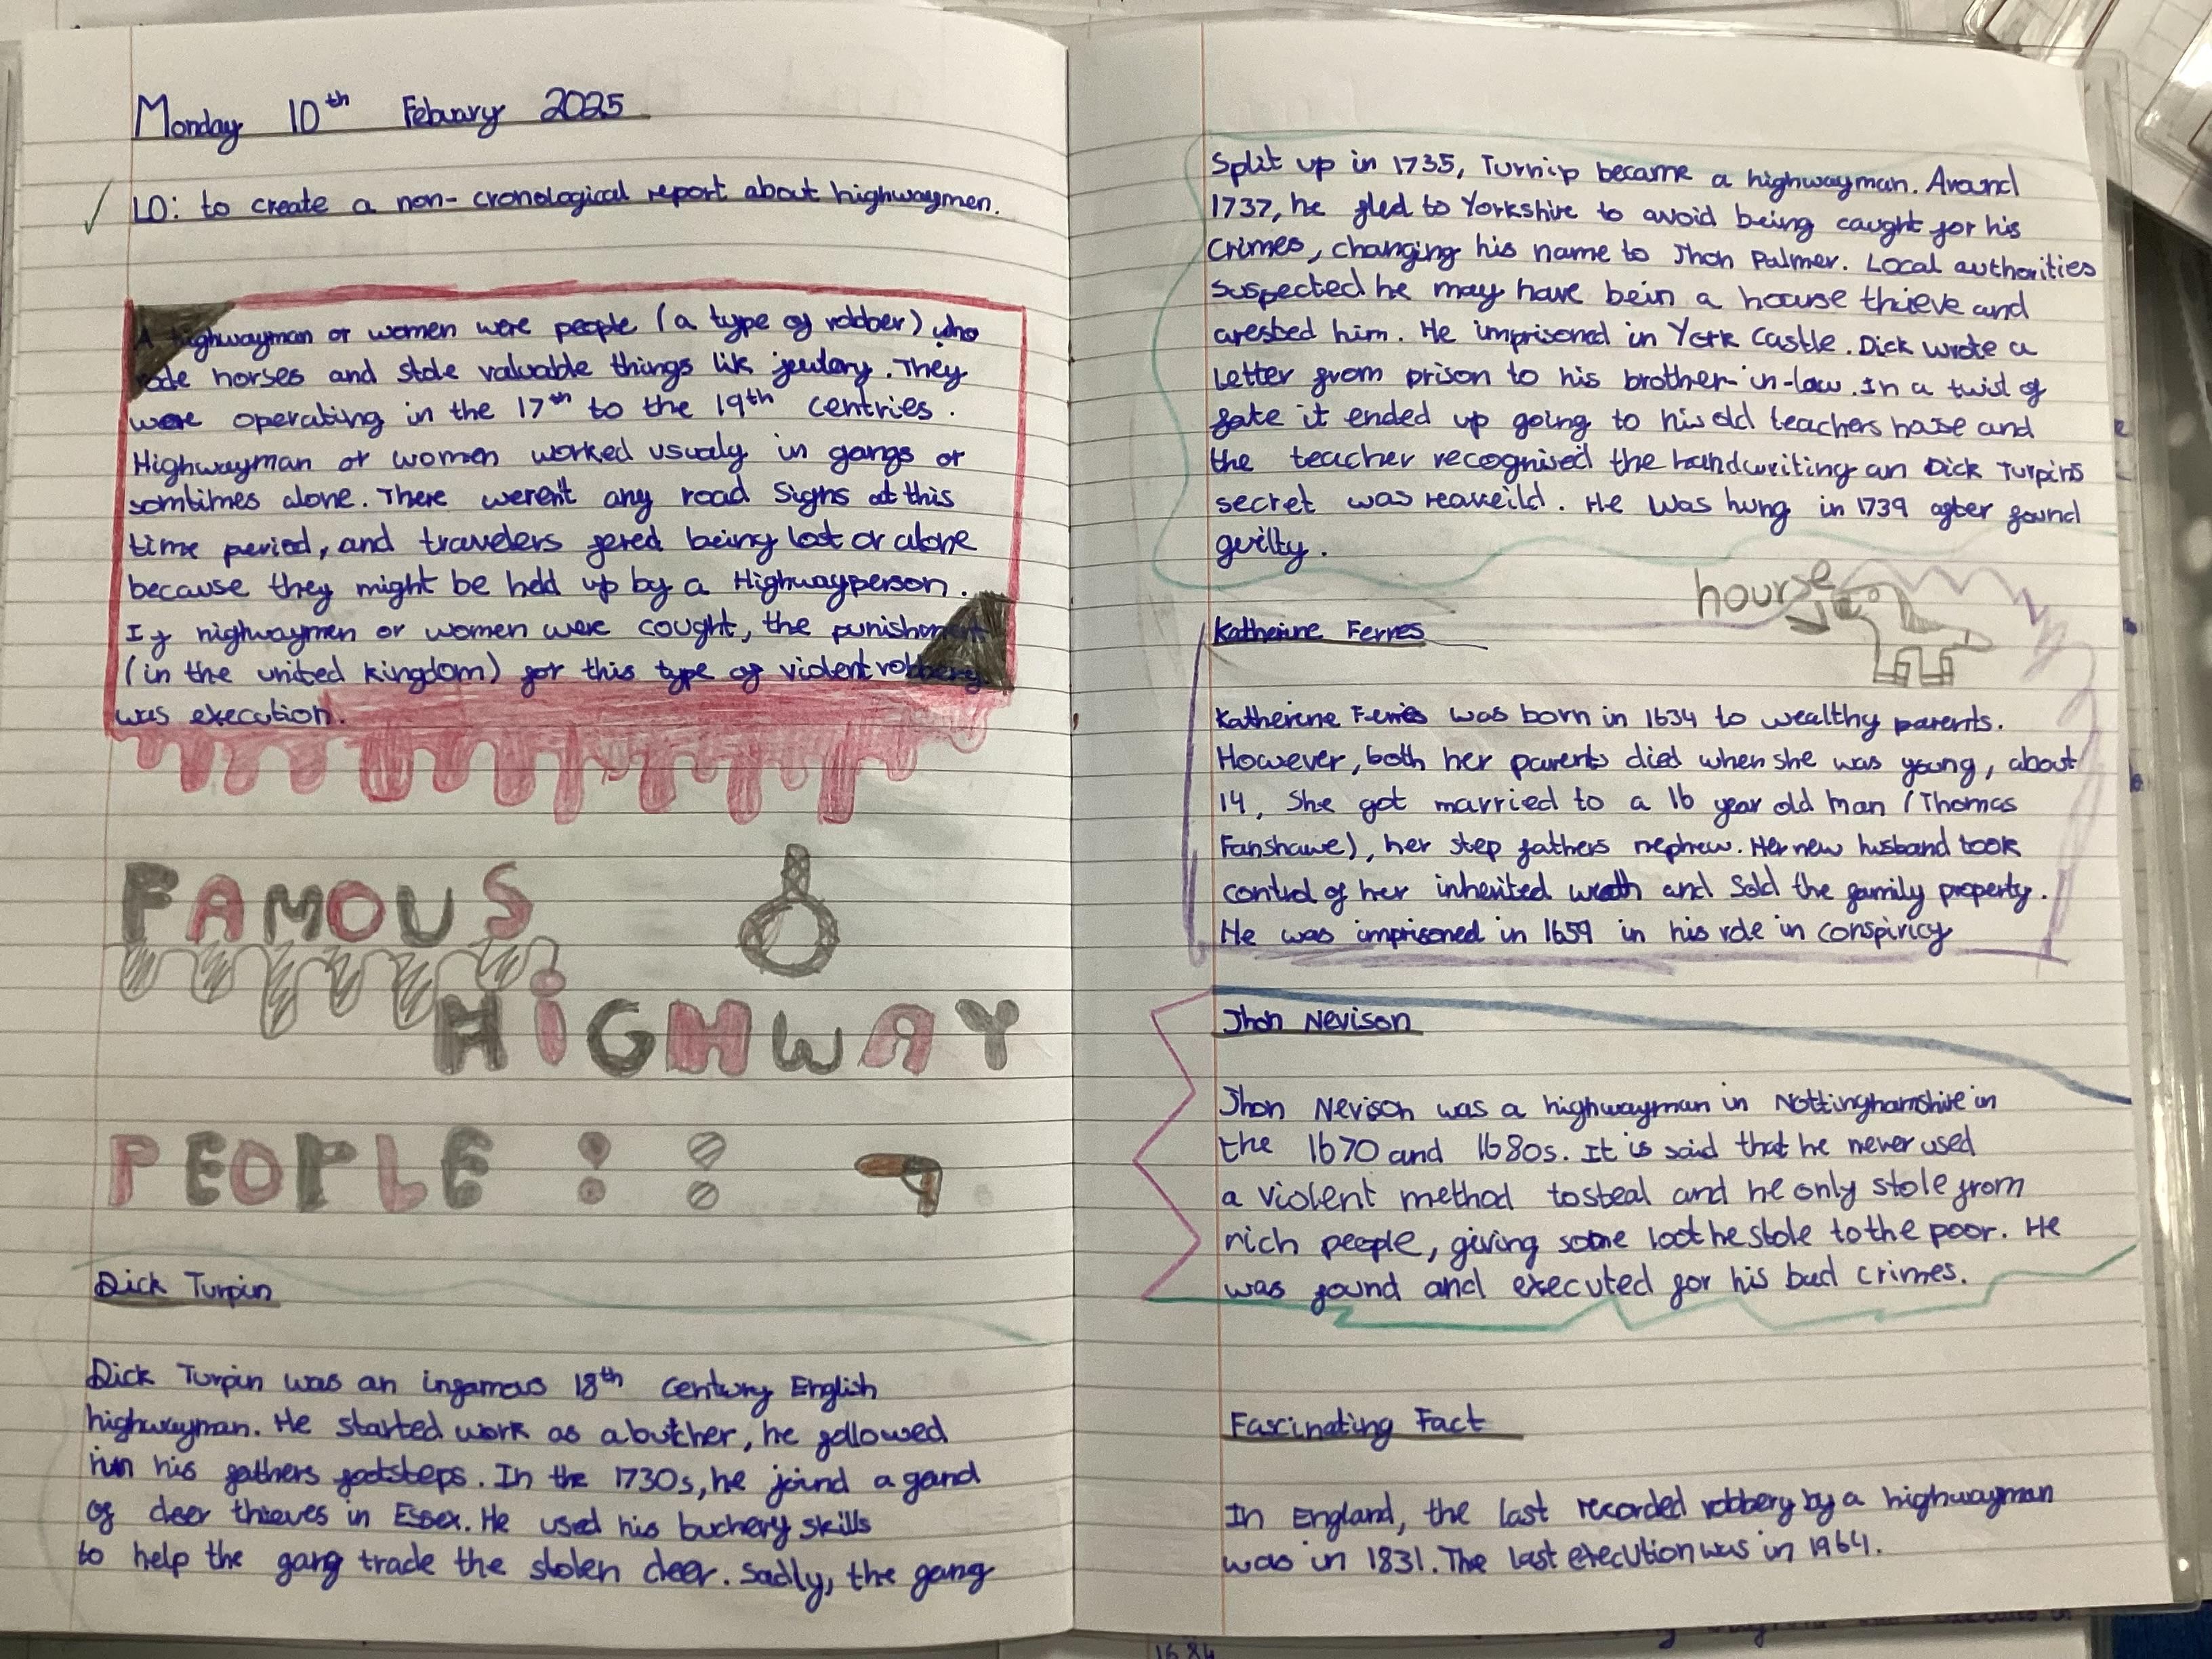 Monday 10th Febuary 2025
LO: to create a non-cronological report about highwaymen.
A highwayman or women were people (a type of robber) who
rode horses and stole valuable things lik jeulery. They
were operating in the 17th to the 19th centries.
Highwayman or women worked usualy in gangs or
somtimes alone. There weren't any road Signs at this
time period, and travelers fered being lost or alone
because they might be held up by a Highwayperson.
If highwaymen or women were cought, the punishment
(in the united kingdom) for this type of violent robbery
was execution.
FAMOUS
HiGHWAY
PEOPLE !!
Dick Turpin
Dick Turpin was an infamous 18th century English
highwayman. He started work as a butcher, he followed
his fathers footsteps. In the 1730s, he joind a gand
of deer thieves in Essex. He used his buchery skills
to help the gang trade the stolen deer. Sadly, the gang
Split up in 1735, Turnip became a highwayman. Around
1737, he fled to Yorkshire to avoid being caught for his
crimes, changing his name to Jhon Palmer. Local authorities
suspected he may have bein a house thieve and
arested him. He imprisoned in York Castle. Dick wrote a
letter from prison to his brother-in-law. In a twist of
fate it ended up going to his old teachers house and
the teacher recognised the handwriting an Dick Turpins
secret was reaveild. He was hung in 1739 after found
guilty.
hourse
Katherine Ferres
Katherine Ferres was born in 1634 to wealthy parents.
However, both her parents died when she was young, about
14, She got married to a 16 year old man (Thomas
Fanshawe), her step fathers nephew. Her new husband took
control of her inherited and Sold the family property.
He was imprisoned in 1659 in his role in conspiricy
Jhon Nevison
Jhon Nevison was a highwayman in Nottinghamshire in
the 1670 and 1680s. It is said that he never used
a violent method to steal and he only stole from
rich people, giving some loot he stole to the poor. He
was found and executed for his bad crimes.
Fascinating Fact
In England, the last recorded robbery by a highwayman
was in 1831. The last execution was in 1964.
1684